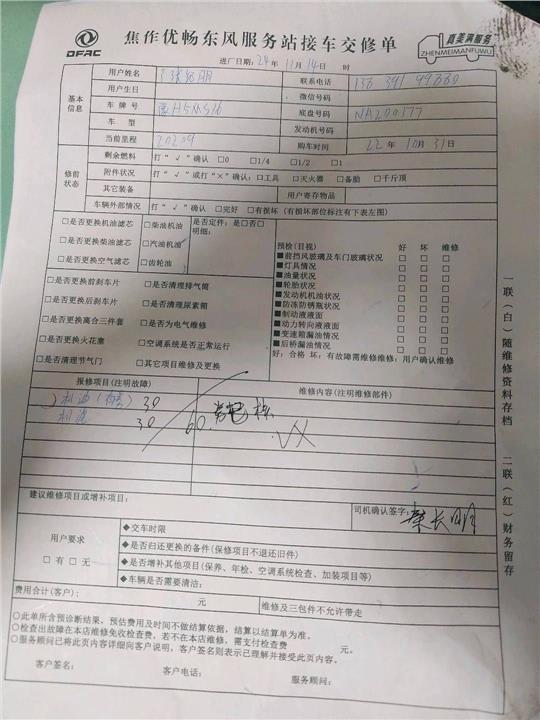 DFAC
焦作优畅东风服务站接车交修单
真美满服务
ZHENMEIMANFUWU
进厂日期：24 年 11 月 14 日 时
基本信息
用户姓名
联系电话
用户生日
微信号码
车牌号
底盘号码 NA200177
车型
发动机号码
当前里程 20209
购车时间 22 年 10 月 31 日
修前状态
剩余燃料 打“√”确认 □0 □1/4 □1/2 □1
附件状况 打“√”或打“×”确认：□工具 □灭火器 □备胎 □千斤顶
其它装备 用户寄存物品
车辆外部情况 打“√”确认 □完好 □有损坏（有损坏部位标注有下表左图）
□是否更换机油滤芯 □柴油机油 是否定件：是□否□
明细：
□是否更换柴油滤芯 □汽油机油
□是否更换空气滤芯 □齿轮油
□是否更换前刹车片 □是否清理排气筒
□是否更换后刹车片 □是否清理尿素箱
□是否更换离合三件套 □是否为电气维修
□是否更换火花塞 □空调系统是否正常运行
□是否清理节气门 □其它项目维修及更换
预检(目视) 好 坏 维修
■前挡风玻璃及车门玻璃状况 □ □ □
■灯具情况 □ □ □
■油量状况 □ □ □
■轮胎状况 □ □ □
■发动机机油状况 □ □ □
■防冻防锈瓶状况 □ □ □
■制动液液面 □ □ □
■动力转向液液面 □ □ □
■变速箱漏油情况 □ □ □
■后桥漏油情况 □ □ □
好：合格 坏：有故障需维修维修：用户确认维修
报修项目(注明故障) 维修内容(注明维修部件)
30
机滤 30 60.
建议维修项目或增补项目：
司机确认签字：
用户要求
□有□无
◆交车时限
◆是否归还更换的备件(保修项目不退还旧件)
◆是否增补其他项目(保养、年检、空调系统检查、加装项目等)
◆车辆是否需要清洁：
费用合计(客户)： 元 维修及三包件不允许带走
○此单所含预诊断结果，预估费用及时间不做结算依据，结算以结算单为准。
○检查出故障在本店维修免收检查费，若不在本店维修，需支付检查费 元。
○服务顾问已将此页内容详细向客户说明，客户签名则表示已理解并接受此页内容。
客户签名： 客户电话： 服务顾问：
一联(白)随维修资料存档 二联(红)财务留存